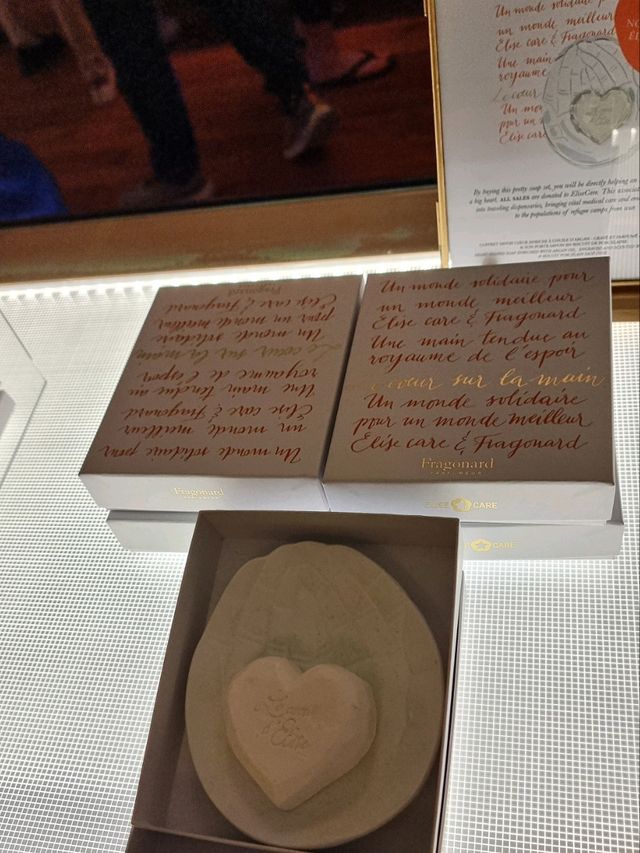 Un monde solidaire p
un monde meilleur
Elise care & Fragonard
Une main
royaume
Le cœur
Un mo
pour un
Elise car
By buying this pretty soap set, you will be directly helping an
a big heart. ALL SALES are donated to EliseCare. This associat
into traveling dispensaries, bringing vital medical care and
to the populations of refugee camps from
Un monde solidaire pour
un monde meilleur
Elise care & Fragonard
Une main tendue au
royaume de l'espoir
Le cœur sur la main
Un monde solidaire
pour un monde meilleur
Elise care & Fragonard
Fragonard
Fragonard
Un monde solidaire pour
un monde meilleur
Elise care & Fragonard
Une main tendue au
royaume de l'espoir
e cœur sur la main
Un monde solidaire
pour un monde meilleur
Elise care & Fragonard
Fragonard
PARFUMEUR
ELISE CARE
CARE